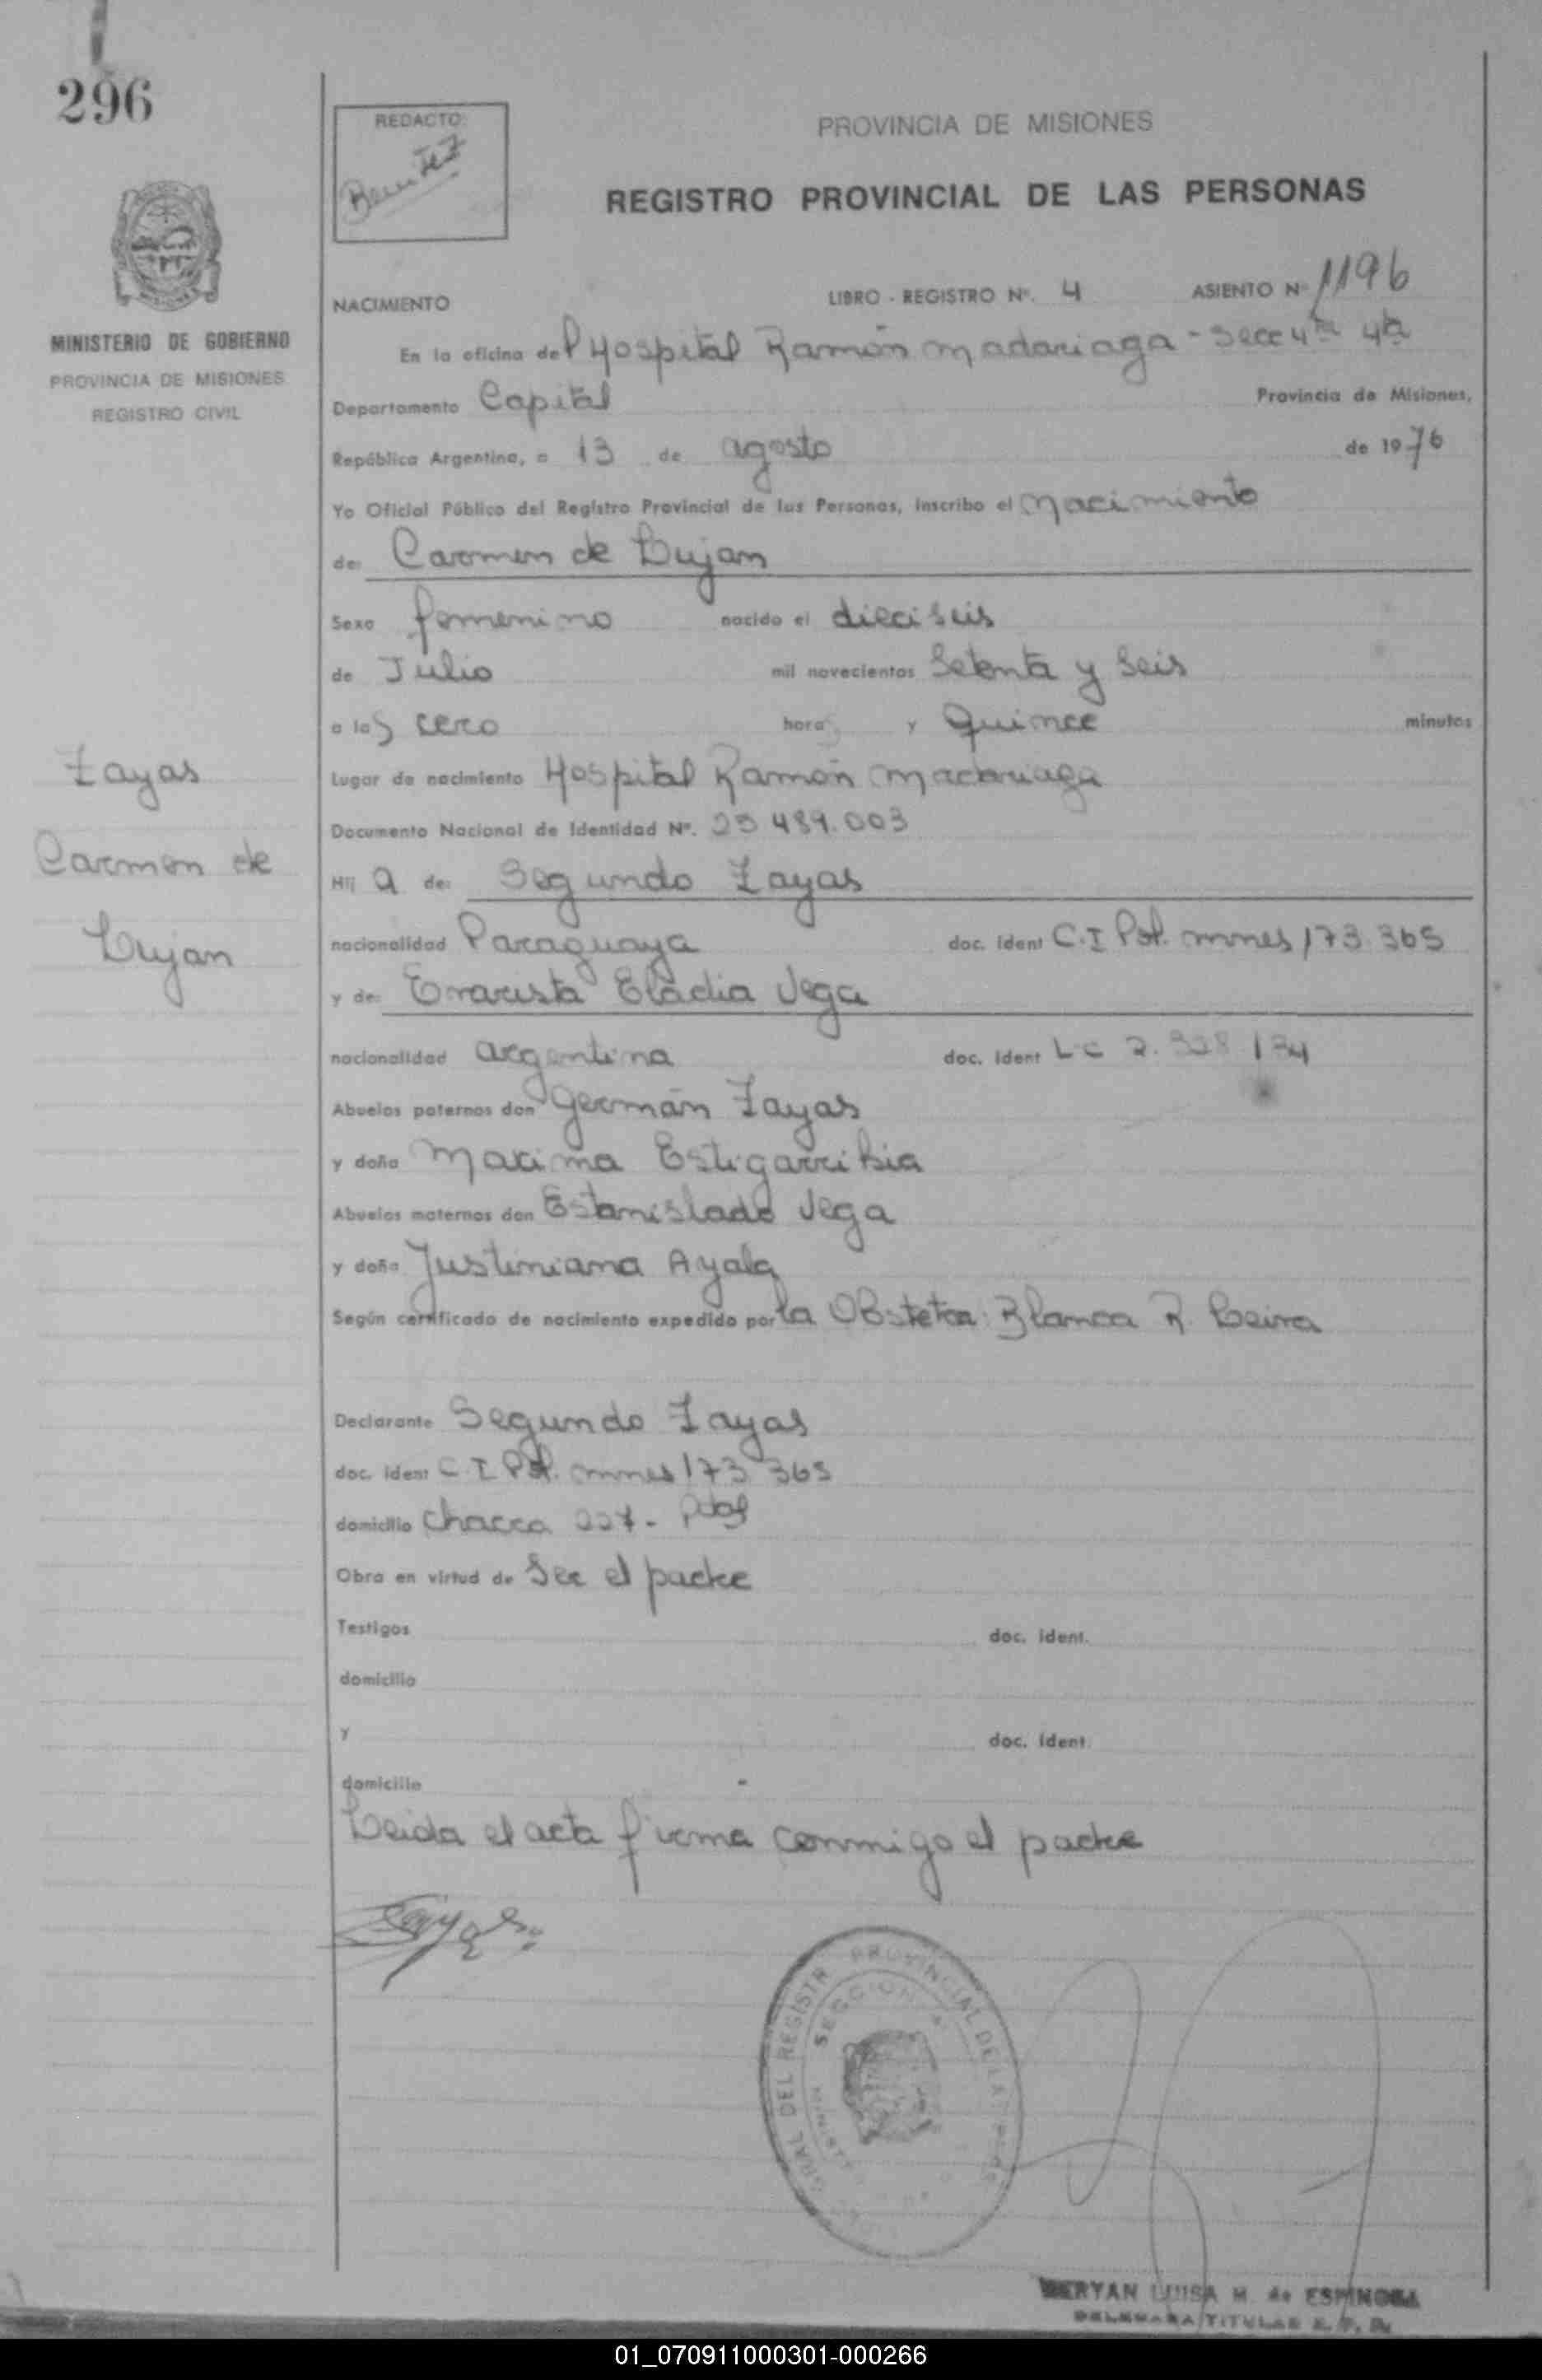 296
REDACTO:
Benitez
PROVINCIA DE MISIONES
REGISTRO PROVINCIAL DE LAS PERSONAS
MINISTERIO DE GOBIERNO
PROVINCIA DE MISIONES
REGISTRO CIVIL
NACIMIENTO LIBRO - REGISTRO Nº. 4 ASIENTO Nº 1196
En la oficina del Hospital Ramón Madariaga - Secc 4ta 4ta
Departamento Capital Provincia de Misiones,
República Argentina, a 13 de agosto de 1976
Yo Oficial Público del Registro Provincial de las Personas, inscribo el Nacimiento
de: Carmen de Lujan
Sexo femenino nacido el dieciseis
de Julio mil novecientos Setenta y Seis
a las cero horas y Quince minutos
Lugar de nacimiento Hospital Ramón Madariaga
Documento Nacional de Identidad Nº. 25 489.003
Zayas
Carmen de
Lujan
Hija de: Segundo Zayas
nacionalidad Paraguaya doc. ident C.I Pol. mnes 173.365
y de: Evarista Eladia Vega
nacionalidad argentina doc. ident L C 2. 328 134
Abuelos paternos don Germán Zayas
y doña Maxima Estigarribia
Abuelos maternos don Estanislado Vega
y doña Justiniana Ayala
Según certificado de nacimiento expedido por la Obstetra: Blanca R. Leiva
Declarante Segundo Zayas
doc. ident C. I Pol. mnes 173 365
domicilio Chacra 227 - Pdas
Obra en virtud de Ser el padre
Testigos doc. ident.
domicilio
y doc. ident.
domicilio
Leida el acta firma conmigo el padre
Zayas
GRAL DEL REGISTR PROVINCIAL DE LAS
SECCION
MERYAN LUISA M. de ESPINOSA
DELEGADA TITULAR R. P. P.
01_070911000301-000266